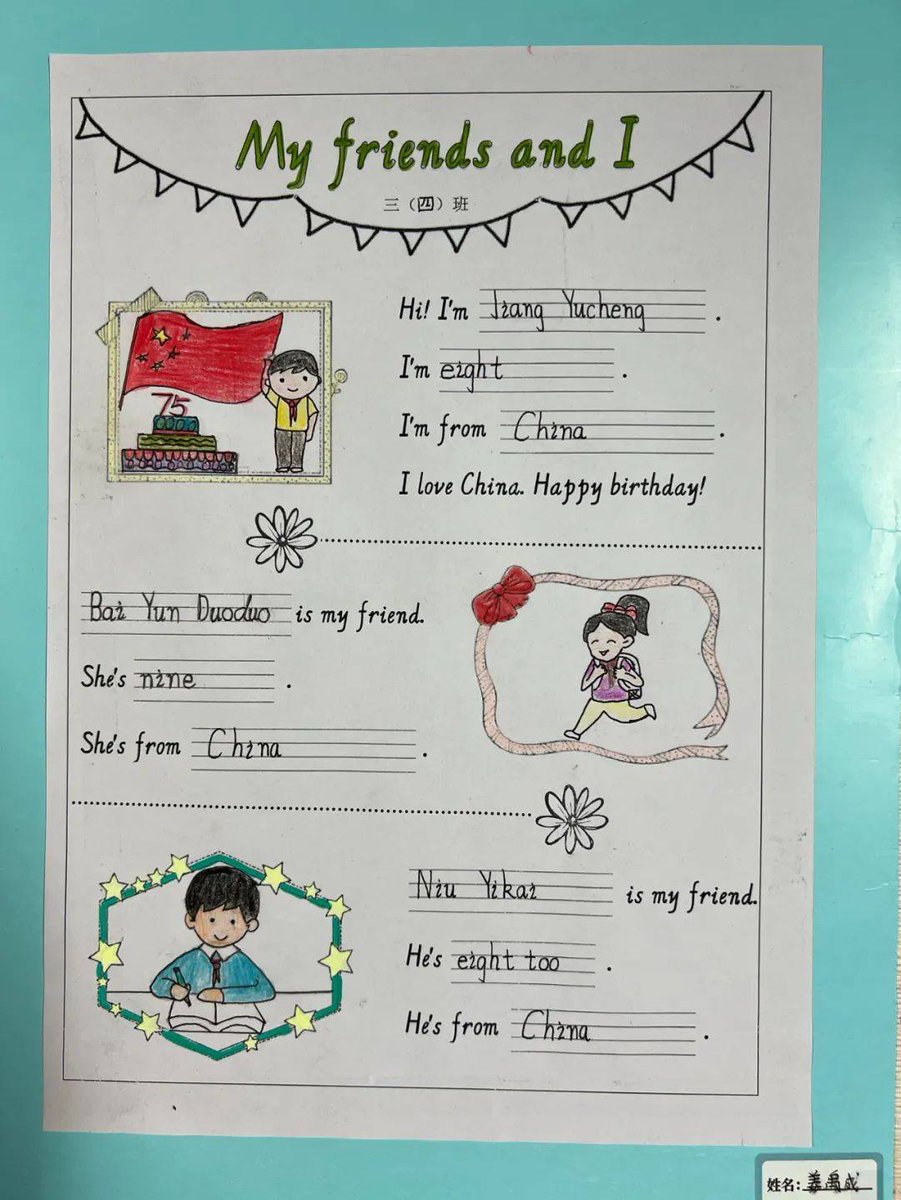 My friends and I
三（四）班
Hi! I'm Jiang Yucheng.
I'm eight.
I'm from China.
I love China. Happy birthday!
75
Bai Yun Duoduo is my friend.
She's nine.
She's from China.
Niu Yikai is my friend.
He's eight too.
He's from China.
姓名：姜禹成